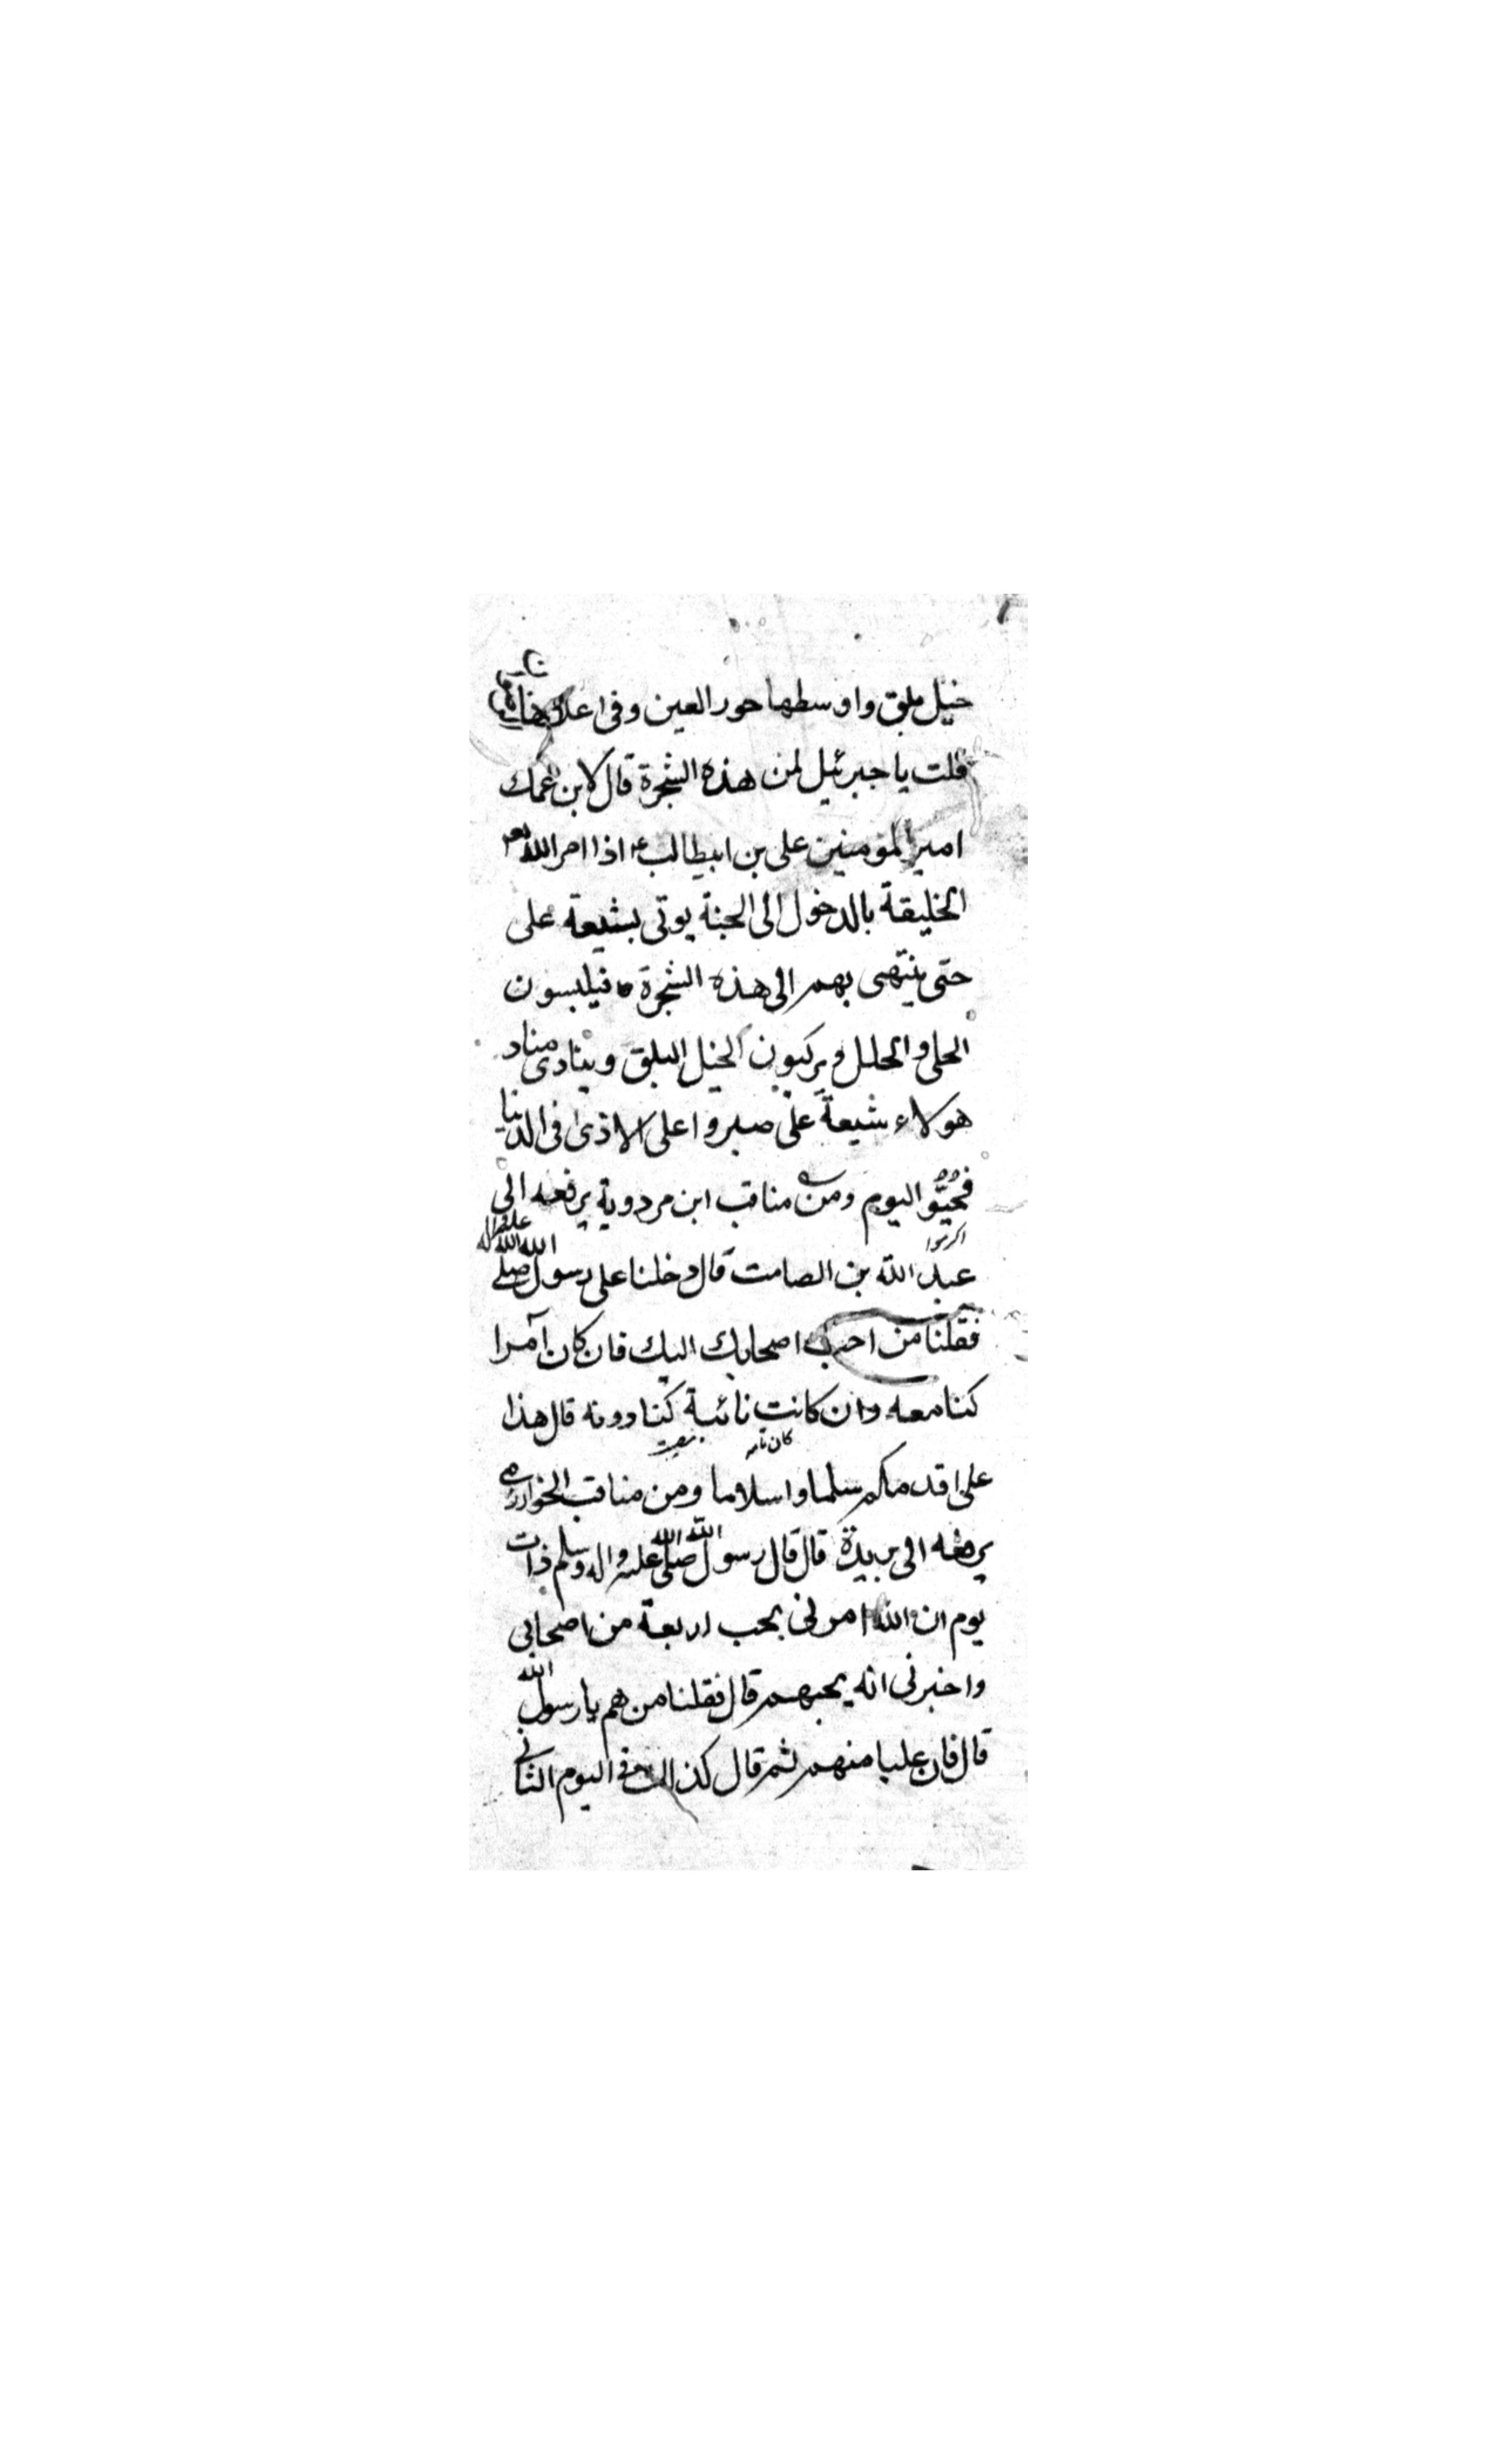 خيل بلق واوسطها حور العين وفى اعلاها
قلت يا جبرئيل لمن هذه الشجرة قال لابن عمك
امير المومنين على بن ابيطالب ع اذا امر الله تعم
الخليقة بالدخول الى الجنة يوتى بشيعة على
حتى ينتهى بهم الى هذه الشجرة فيلبسون
الحلى والحلل ويركبون الخيل البلق وينادى مناد
هولاء شيعة على صبروا على الاذى فى الدنيا
فحيوا اليوم ومن مناقب ابن مردوية يرفعه الى
اكرموا
عبد الله بن الصامت قال دخلنا على رسول الله صلى الله عليه واله
فقلنا من احب اصحابك اليك فان كان آمرا
كنا معه وان كانت نائبة كنا دونه قال هذا
كان تامه
على اقدمكم سلما واسلاما ومن مناقب الخوارزمى
يرفعه الى بريدة قال قال رسول الله صلى الله عليه واله وسلم ذات
يوم ان الله امرنى بحب اربعة من اصحابى
واخبرنى انه يحبهم قال فقلنا من هم يا رسول الله
قال فان عليا منهم ثم قال كذالك فى اليوم الثانى